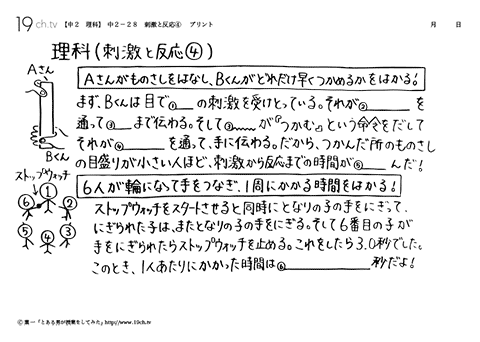 19ch.tv 【中2 理科】 中2-28 刺激と反応④ プリント 月 日
理科(刺激と反応④)
Aさん
Bくん
Aさんがものさしをはなし、Bくんがどれだけ早くつかめるかをはかる!
まず、Bくんは目で①__の刺激を受けとっている。それが②____を
通って③___まで伝わる。そして③____が『つかむ』という命令をだして
それが④____を通って、手に伝わる。だから、つかんだ所のものさし
の目盛りが小さい人ほど、刺激から反応までの時間が⑤____んだ!
6人が輪になって手をつなぎ、1周にかかる時間をはかる!
ストップウォッチ
① ② ③ ④ ⑤ ⑥
ストップウォッチをスタートさせると同時にとなりの子の手をにぎって、
にぎられた子は、またとなりの子の手をにぎる。そして6番目の子が
手をにぎられたらストップウォッチを止める。これをしたら3.0秒でした。
このとき、1人あたりにかかった時間は⑥__________秒だよ!
Ⓒ葉一「とある男が授業をしてみた」http://www.19ch.tv